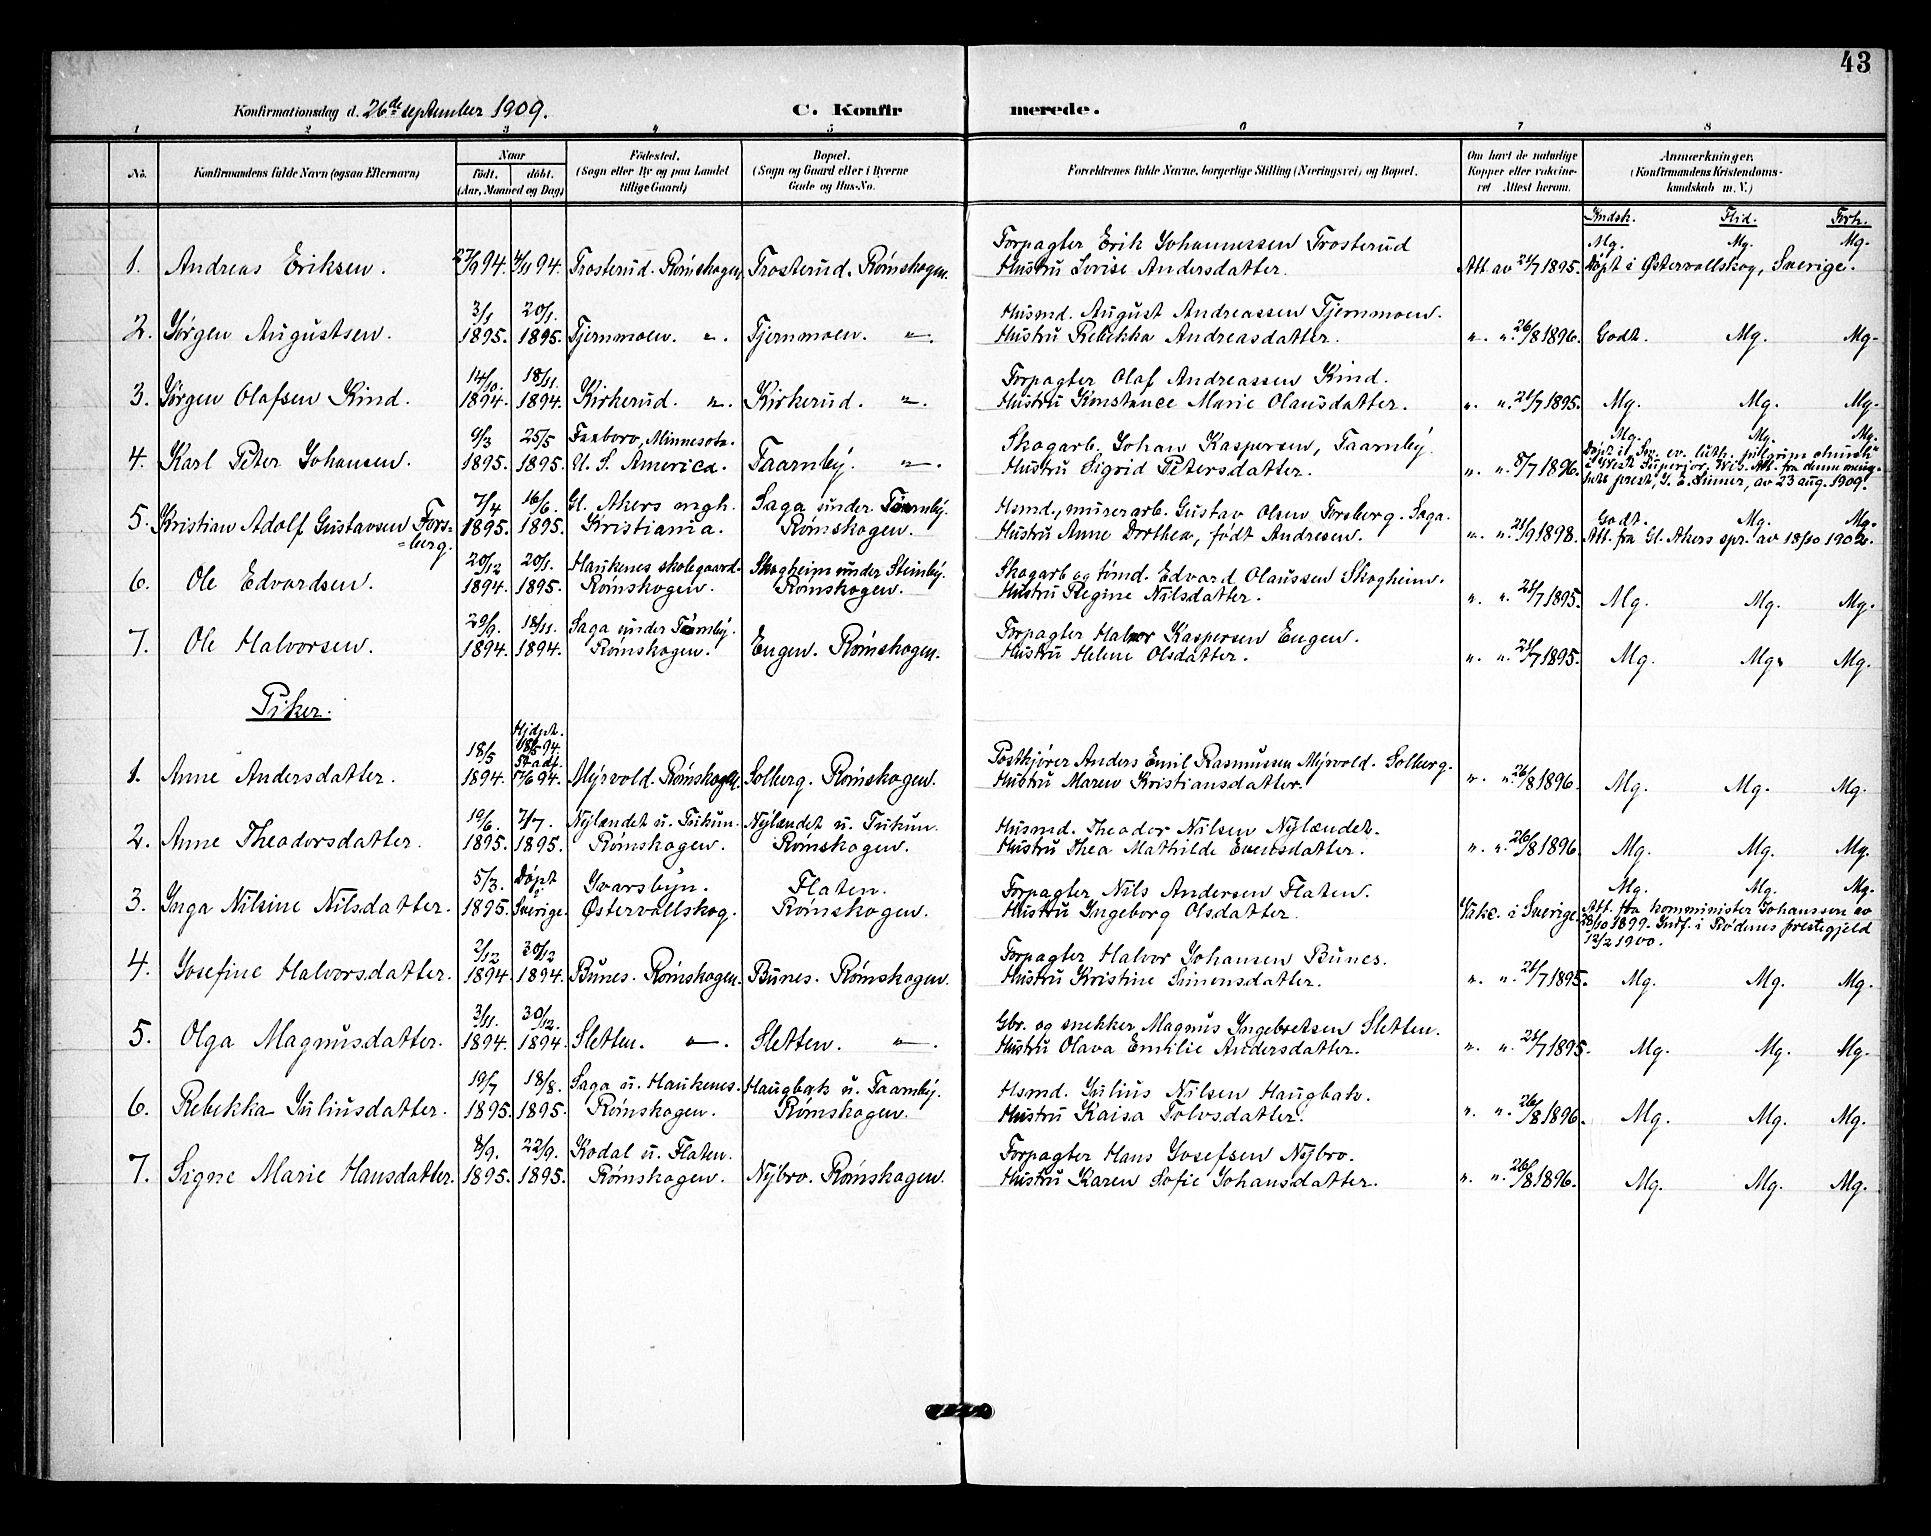 43
Konfirmationsdag d. 26de september 1909. C. Konfirmerede.
1 2 3 4 5 6 7 8
No. Konfirmandens fulde Navn (ogsaa Efternavn) Naar født. døbt. (Aar, Maaned og Dag) Fødested. (Sogn eller By og paa Landet tillige Gaard) Bopæl. (Sogn og Gaard eller i Byerne Gade og Hus-No. Forældrenes fulde Navne, borgerlige Stilling (Næringsvei) og Bopæl. Om havt de naturlige Kopper eller vaccineret Attest herom. Anmærkninger. (Konfirmandens Kristendomskundskab m. V.)
Kndsk. Flid. Forh.
27/9 94. 4/11 94. Forpagter Erik Johannessen Trosterud Mg. Mg. Mg.
1. Andreas Eriksen. Trosterud. Rømskogen. Trosterud. Rømskogen. Hustru Lovise Andersdatter. Att av 21/7 1895. Døpt i Østervallskog, Sverige.
3/1 20/1. Husmd. August Andreassen Tjernmoen.
2. Jørgen Augustsen. 1895. 1895. Tjernmoen. "-. Tjernmoen. "-. Hustru Rebekka Andreasdatter. ". ". 26/8 1896. Godt. Mg. Mg.
14/10. 18/11. Forpagter Olaf Andreassen Kind.
3. Jørgen Olafsen Kind. 1894. 1894. Kirkerud. ". Kirkerud. "-. Hustru Konstance Marie Olausdatter. ". ". 21/7 1895. Mg. Mg. Mg.
9/3 25/5 Faxboro, Minnesota. Skogarb. Johan Kaspersen, Taarnby. Mg. Mg. Mg.
4. Karl Peter Johansen. 1895. 1895. U. S. America. Taarnby. "-. Hustru Sigrid Petersdatter. ". ". 8/7 1896. Døpt i Sw. ev. luth. pilgrim church i West Superior, Wis. Att. fra denne menighets prest, av 23 aug. 1909.
7/4 16/6. Gl. Akers mgh. Saga under Tørnby. Hsmd., murerarb. Gustav Olsen Forsberg. Saga. Godt. Mg. Mg.
5. Kristian Adolf Gustavsen Fors-berg. 1895. 1895. Kristiania. Rømskogen. Hustru Anne Dorthea, født Andresen. ". ". 21/9 1898. Att. fra Gl. Akers spr. av 18/10 1902.
20/12 20/1. Haukenes skolegaard. Skogheim under Steinby. Skogarb og tømd. Edvard Olaussen Skogheim.
6. Ole Edvardsen. 1894. 1895. Rømskogen. Rømskogen. Hustru Regine Nilsdatter. ". ". 21/7 1895. Mg. Mg. Mg.
29/9. 18/11. Saga under Tørnby. Forpagter Halvor Kaspersen Engen.
7. Ole Halvorsen. 1894. 1894. Rømskogen. Engen. Rømskogen. Hustru Helene Olsdatter. ". ". 21/7 1895. Mg. Mg. Mg.
Piker.
Hjdpt. 18/5 94.
18/5 Stadf. Postkjører Anders Emil Rasmussen Myrvold. Solberg.
1. Anne Andersdatter. 1894. 17/6 94. Myrvold. Rømskogen. Solberg. Rømskogen. Hustru Maren Kristiansdatter. ". ". 26/8 1896. Mg. Mg. Mg.
19/6. 7/7. Nylændet u. Tukun. Nylændet u. Tukun. Husmd. Theodor Nilsen Nylændet.
2. Anne Theodorsdatter. 1895. 1895. Rømskogen. Rømskogen. Hustru Thea Mathilde Evensdatter. ". ". 26/8 1896. Mg. Mg. Mg.
5/3. Døpt i Ivarsbyn. Flaten. Forpagter Nils Andersen Flaten. Mg. Mg. Mg.
3. Inga Nilsine Nilsdatter. 1895. Sverige. Østervallskog. Rømskogen. Hustru Ingeborg Olsdatter. Vakc. i Sverige. Att. fra komminister Johansson av 28/10 1899. Indf. i Rødenes prestegjeld 12/2 1900.
2/12 30/12 Forpagter Halvor Johansen Bunes.
4. Josefine Halvorsdatter. 1894. 1894. Bunes. Rømskogen. Bunes. Rømskogen. Hustru Kristine Simensdatter. ". ". 21/7 1895. Mg. Mg. Mg.
3/11. 30/12. Gbr. og snekker Magnus Ingebretsen Sletten.
5. Olga Magnusdatter. 1894. 1894. Sletten. "-. Sletten. "-. Hustru Olava Emilie Andersdatter. ". ". 21/7 1895. Mg. Mg. Mg.
19/7 18/8. Saga u. Haukenes. Haugbak u. Taarnby. Hsmd. Julius Nilsen Haugbak.
6. Rebekka Juliusdatter. 1895. 1895. Rømskogen. Rømskogen. Hustru Kaisa Tolvsdatter. ". ". 26/8 1896. Mg. Mg. Mg.
8/9. 22/9. Kodal u. Flaten. Forpagter Hans Josefsen Nybro.
7. Signe Marie Hansdatter. 1895. 1895. Rømskogen. Nybro. Rømskogen. Hustru Karen Sofie Johansdatter. ". ". 26/8 1896. Mg. Mg. Mg.